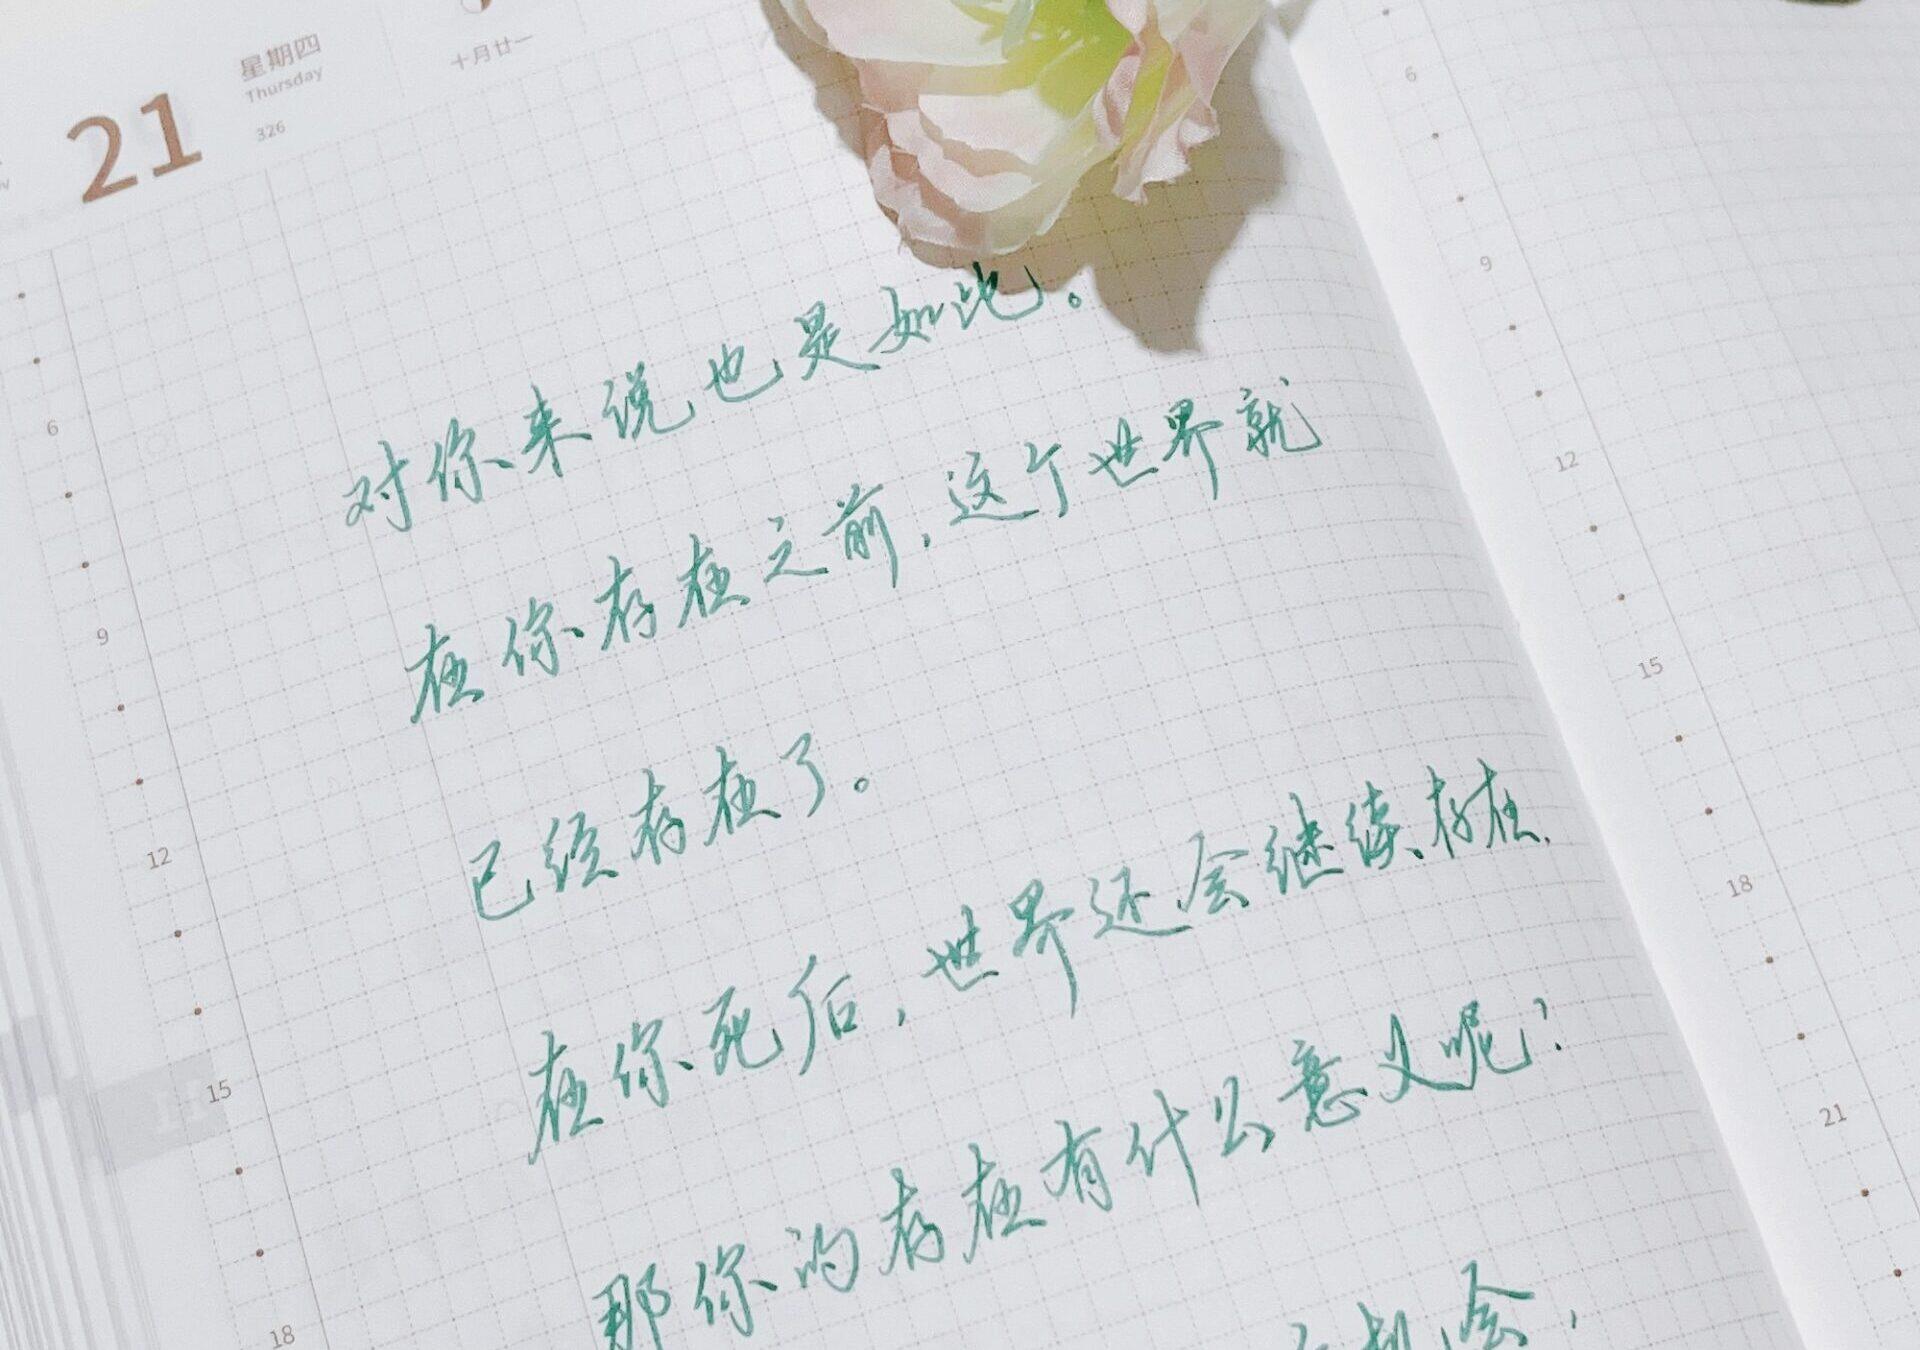 21
星期四
Thursday
326
十月廿一
对你来说也是如此。
在你存在之前,这个世界就
已经存在了。
在你死后,世界还会继续存在.
那你的存在有什么意义呢?
机会,
6
9
12
15
18
6
9
12
15
18
21